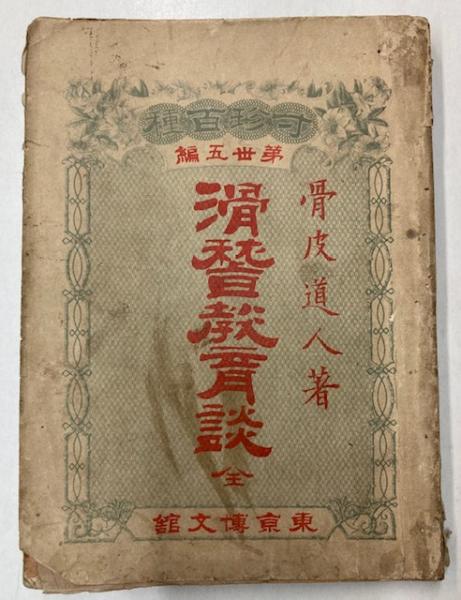 寸珍百種
第丗五編
骨皮道人著
滑稽教育談 全
東京博文館